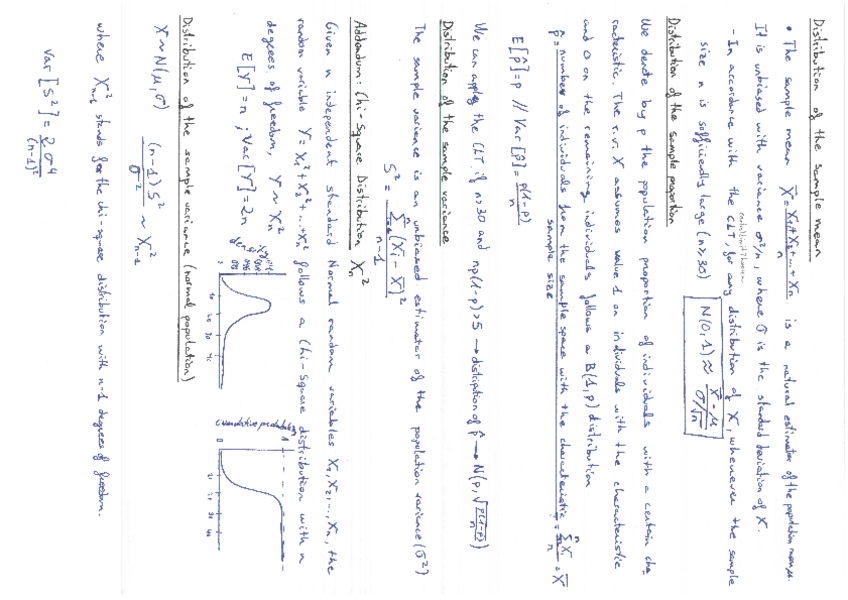 Distribution of the sample mean
• The sample mean X̄ = X₁+X₂+...+Xn / n is a natural estimator of the population mean μ.
It is unbiased with variance σ²/n, where σ is the standard deviation of X.
- In accordance with the CLT, for any distribution of X, whenever the sample
central limit theorem
size n is sufficiently large (n≥30) N(0,1) ≈ X̄-μ / σ/√n
Distribution of the sample proportion
We denote by p the population proportion of individuals with a certain cha
racteristic. The r.v. X assumes value 1 on individuals with the characteristic
and 0 on the remaining individuals follows a B(1,p) distribution
p̂ = number of individuals from the sample space with the characteristic / sample size = Σ Xi / n = X̄
E[p̂]=p // Var[p̂]= p(1-p) / n
We can apply the CLT if n>30 and np(1-p)>5 → distribution of p̂ → N(p, √p(1-p)/n)
Distribution of the sample variance
The sample variance is an unbiased estimator of the population variance (σ²)
S² = Σ(Xi - X̄)² / n-1
Addendum: Chi-Square Distribution Xn²
Given n independent standard Normal random variables X₁, X₂, ..., Xn, the
random variable Y = X₁²+X₂²+...+Xn² follows a Chi-Square distribution with n
degrees of freedom, Y ~ Xn²
E[Y]=n ; Var[Y]=2n
0 10 20 30 40
cumulative probability
1
0 10 20 30 40
Distribution of the sample variance (normal population)
X ~ N(μ,σ) (n-1)S² / σ² ~ X²n-1
where X²n-1 stands for the chi-square distribution with n-1 degrees of freedom.
Var[S²] = 2σ⁴ / (n-1)²